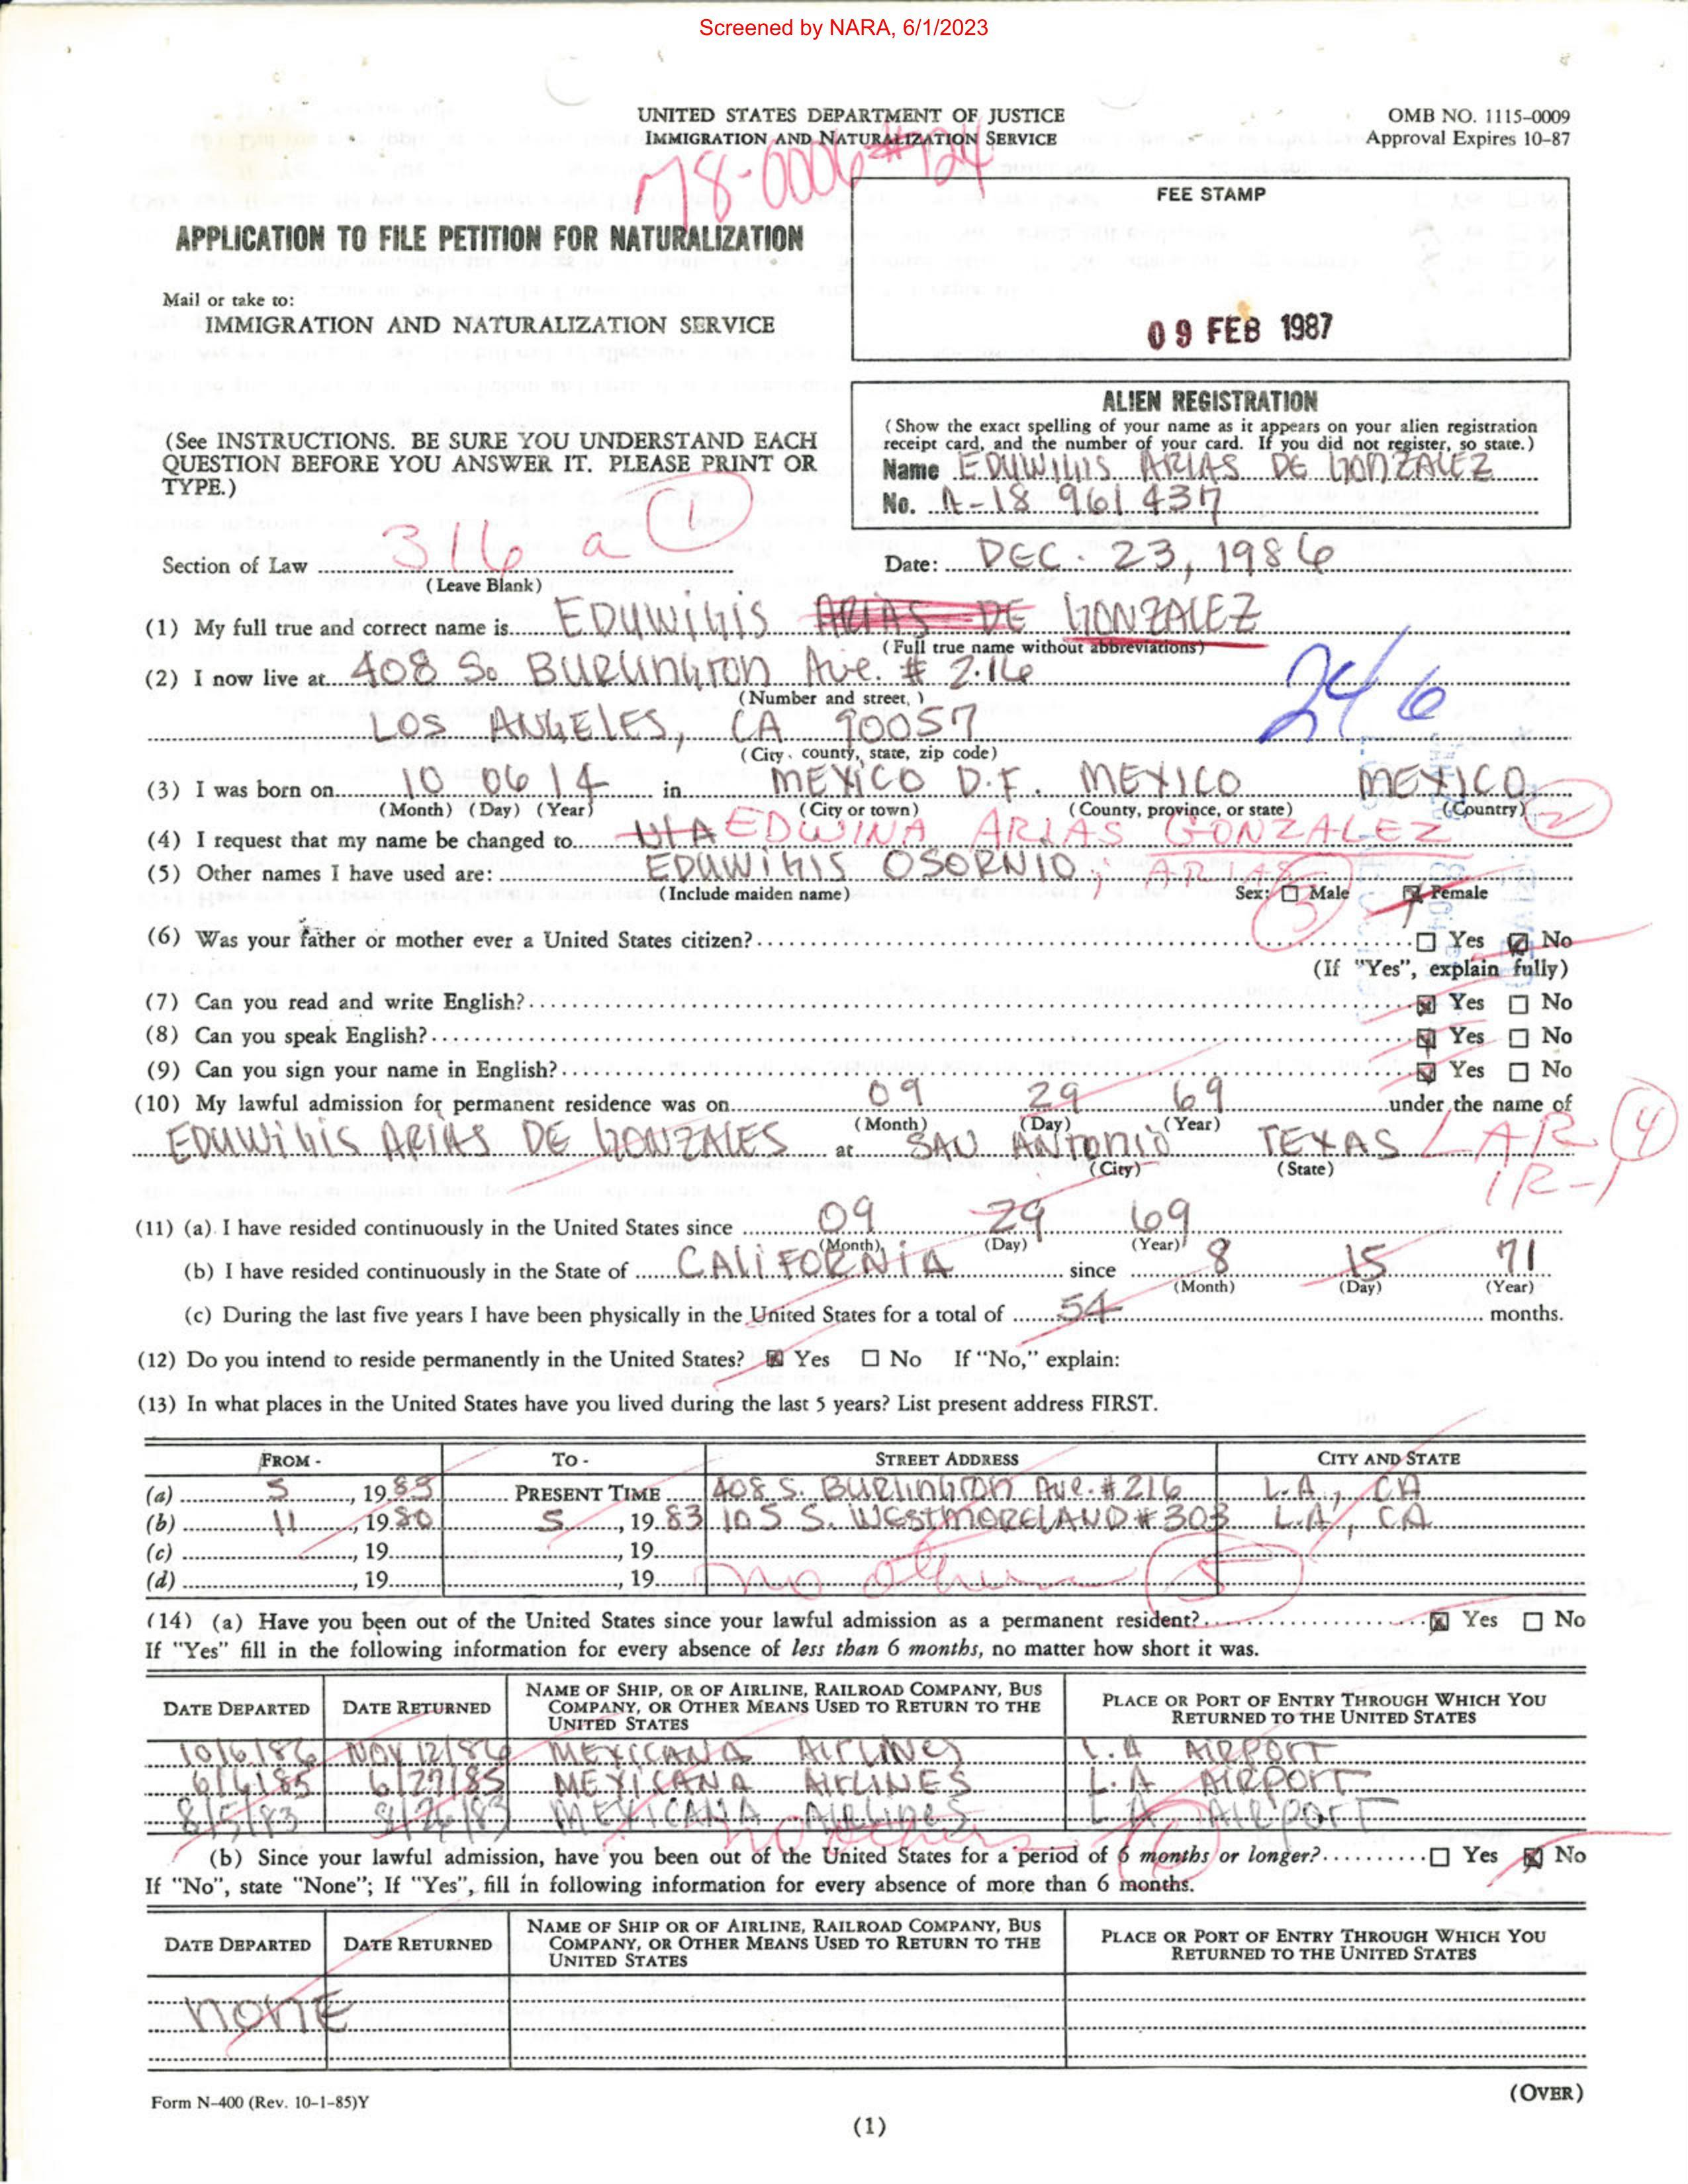 Screened by NARA, 6/1/2023
UNITED STATES DEPARTMENT OF JUSTICE
IMMIGRATION AND NATURALIZATION SERVICE
OMB NO. 1115-0009
Approval Expires 10-87
M8-0006 #724
FEE STAMP
09 FEB 1987
APPLICATION TO FILE PETITION FOR NATURALIZATION
Mail or take to:
IMMIGRATION AND NATURALIZATION SERVICE
(See INSTRUCTIONS. BE SURE YOU UNDERSTAND EACH
QUESTION BEFORE YOU ANSWER IT. PLEASE PRINT OR
TYPE.)
ALIEN REGISTRATION
(Show the exact spelling of your name as it appears on your alien registration
receipt card, and the number of your card. If you did not register, so state.)
Name EDUWIGIS ARIAS DE GONZALEZ
No. A-18 961 437
Section of Law 316 a 1
(Leave Blank)
Date: DEC. 23, 1986
(1) My full true and correct name is EDUWIGIS ARIAS DE GONZALEZ
(Full true name without abbreviations)
(2) I now live at 408 So. BURLINGTON Ave. # 216
(Number and street, )
246
LOS ANGELES, CA 90057
(City, county, state, zip code)
(3) I was born on 10 06 14 in MEXICO D.F. MEXICO MEXICO
(Month) (Day) (Year) (City or town) (County, province, or state) (Country) 2
(4) I request that my name be changed to N/A EDWINA ARIAS GONZALEZ
(5) Other names I have used are: EDUWIGIS OSORNIO; ARIAS
(Include maiden name) Sex: Male Female
3
(6) Was your father or mother ever a United States citizen? Yes No
(If "Yes", explain fully)
(7) Can you read and write English? Yes No
(8) Can you speak English? Yes No
(9) Can you sign your name in English? Yes No
(10) My lawful admission for permanent residence was on 09 29 69 under the name of
(Month) (Day) (Year)
EDUWIGIS ARIAS DE GONZALES at SAN ANTONIO TEXAS LAR 4
(City) (State) IR-1
(11) (a) I have resided continuously in the United States since 09 29 69
(Month) (Day) (Year)
(b) I have resided continuously in the State of CALIFORNIA since 8 15 71
(Month) (Day) (Year)
(c) During the last five years I have been physically in the United States for a total of 54 months.
(12) Do you intend to reside permanently in the United States? Yes No If "No," explain:
(13) In what places in the United States have you lived during the last 5 years? List present address FIRST.
FROM - TO - STREET ADDRESS CITY AND STATE
(a) 5, 1983 PRESENT TIME 408 S. BURLINGTON Ave. #216 L.A, CA
(b) 11, 1980 5, 1983 105 S. WESTMORELAND #303 L.A, CA
(c) , 19 , 19
(d) , 19 , 19 no others 5
(14) (a) Have you been out of the United States since your lawful admission as a permanent resident? Yes No
If "Yes" fill in the following information for every absence of less than 6 months, no matter how short it was.
DATE DEPARTED DATE RETURNED NAME OF SHIP, OR OF AIRLINE, RAILROAD COMPANY, BUS COMPANY, OR OTHER MEANS USED TO RETURN TO THE UNITED STATES PLACE OR PORT OF ENTRY THROUGH WHICH YOU RETURNED TO THE UNITED STATES
10/6/86 NOV 12/86 MEXICANA AIRLINES L.A AIRPORT
6/4/85 6/27/85 MEXICANA AIRLINES L.A AIRPORT
8/5/83 8/26/83 MEXICANA AIRLINES L.A AIRPORT
no others 6
(b) Since your lawful admission, have you been out of the United States for a period of 6 months or longer? Yes No
If "No", state "None"; If "Yes", fill in following information for every absence of more than 6 months.
DATE DEPARTED DATE RETURNED NAME OF SHIP OR OF AIRLINE, RAILROAD COMPANY, BUS COMPANY, OR OTHER MEANS USED TO RETURN TO THE UNITED STATES PLACE OR PORT OF ENTRY THROUGH WHICH YOU RETURNED TO THE UNITED STATES
NONE
Form N-400 (Rev. 10-1-85)Y
(OVER)
(1)